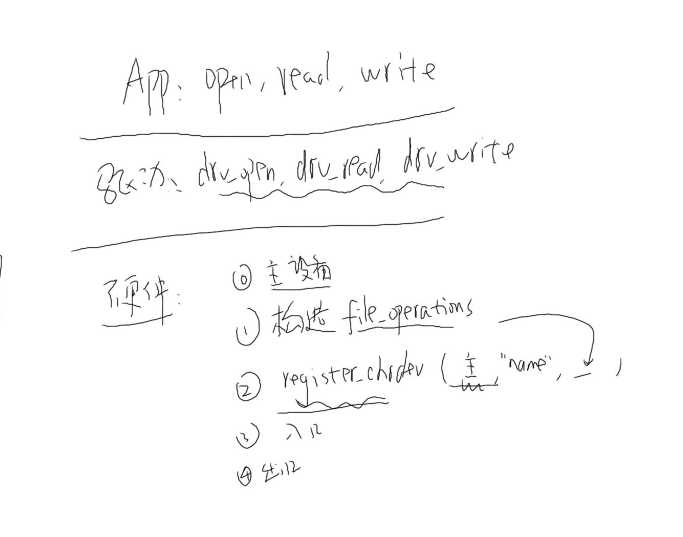 App: open, read, write
驱动、drv_open, drv_read, drv_write
硬件:
⓪ 主设备
① 构造 file_operations
② register_chrdev (主, "name", _ )
③ 入口
④ 出口